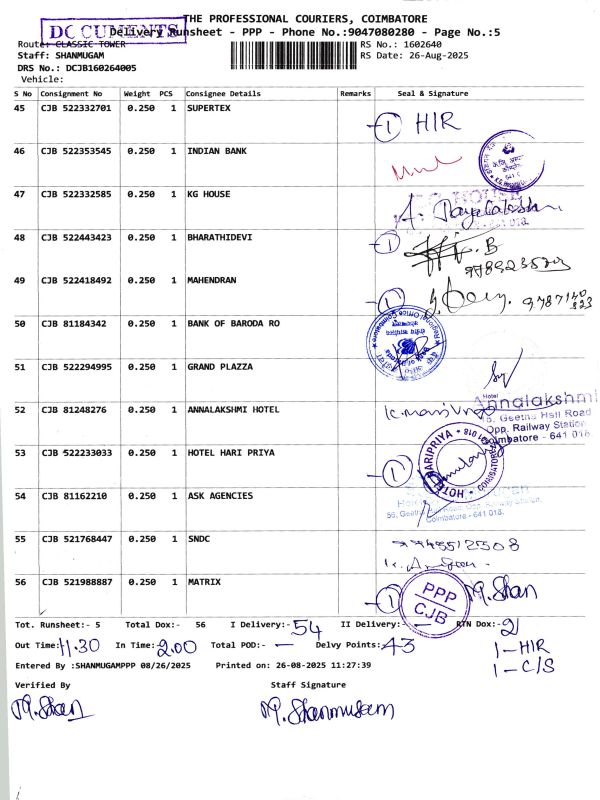 THE PROFESSIONAL COURIERS, COIMBATORE
DOCUMENTS
Delivery Runsheet - PPP - Phone No.:9047080280 - Page No.:5
Route: CLASSIC TOWER
RS No.: 1602640
Staff: SHANMUGAM
RS Date: 26-Aug-2025
DRS No.: DCJB160264005
Vehicle:
S No Consignment No Weight PCS Consignee Details Remarks Seal & Signature
45 CJB 522332701 0.250 1 SUPERTEX 1 HIR
46 CJB 522353545 0.250 1 INDIAN BANK
47 CJB 522332585 0.250 1 KG HOUSE
48 CJB 522443423 0.250 1 BHARATHIDEVI 1
49 CJB 522418492 0.250 1 MAHENDRAN 1
50 CJB 81184342 0.250 1 BANK OF BARODA RO
51 CJB 522294995 0.250 1 GRAND PLAZZA
Hotel
Annalakshmi
52 CJB 81248276 0.250 1 ANNALAKSHMI HOTEL
Geetha Hall Road
Opp. Railway Station
Coimbatore - 641 018.
53 CJB 522233033 0.250 1 HOTEL HARI PRIYA 1
HOTEL HARIPRIYA COIMBATORE 641 018
54 CJB 81162210 0.250 1 ASK AGENCIES
Coimbatore - 641 018.
55 CJB 521768447 0.250 1 SNDC
56 CJB 521988887 0.250 1 MATRIX 1 M. Shan
PPP
CJB
Tot. Runsheet:- 5 Total Dox:- 56 I Delivery:- 54 II Delivery:- — RTN Dox:- 2
Out Time: 11.30 In Time: 2.00 Total POD:- — Delvy Points: 43
1 - HIR
1 - C/S
Entered By :SHANMUGAMPPP 08/26/2025 Printed on: 26-08-2025 11:27:39
Verified By Staff Signature
M. Shan M. Shanmugam